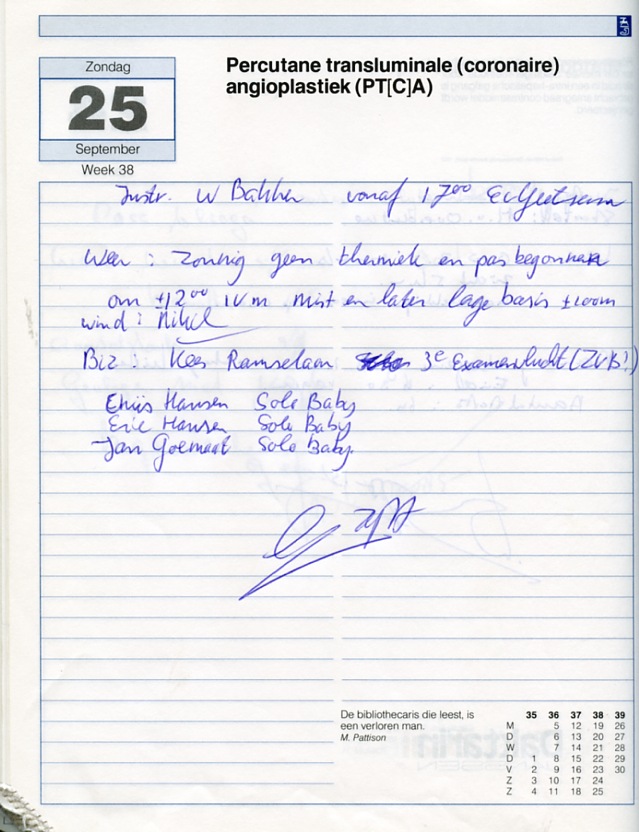 Zondag
25
September
Week 38
Percutane transluminale (coronaire)
angioplastiek (PT[C]A)
Instr. W Bakker vanaf 17⁰⁰
Weer : Zonnig geen thermiek en pas begonnen
om ±12⁰⁰ i v m mist en later lage basis ±100m
wind : Nihil
Biz : Kees Ramselaar 3e Examenvlucht (ZVB!)
Chris Hansen Solo Baby
Eric Hansen Solo Baby
Jan Goemaat Solo Baby
De bibliothecaris die leest, is
een verloren man.
M. Pattison
35 36 37 38 39
M 5 12 19 26
D 6 13 20 27
W 7 14 21 28
D 1 8 15 22 29
V 2 9 16 23 30
Z 3 10 17 24
Z 4 11 18 25